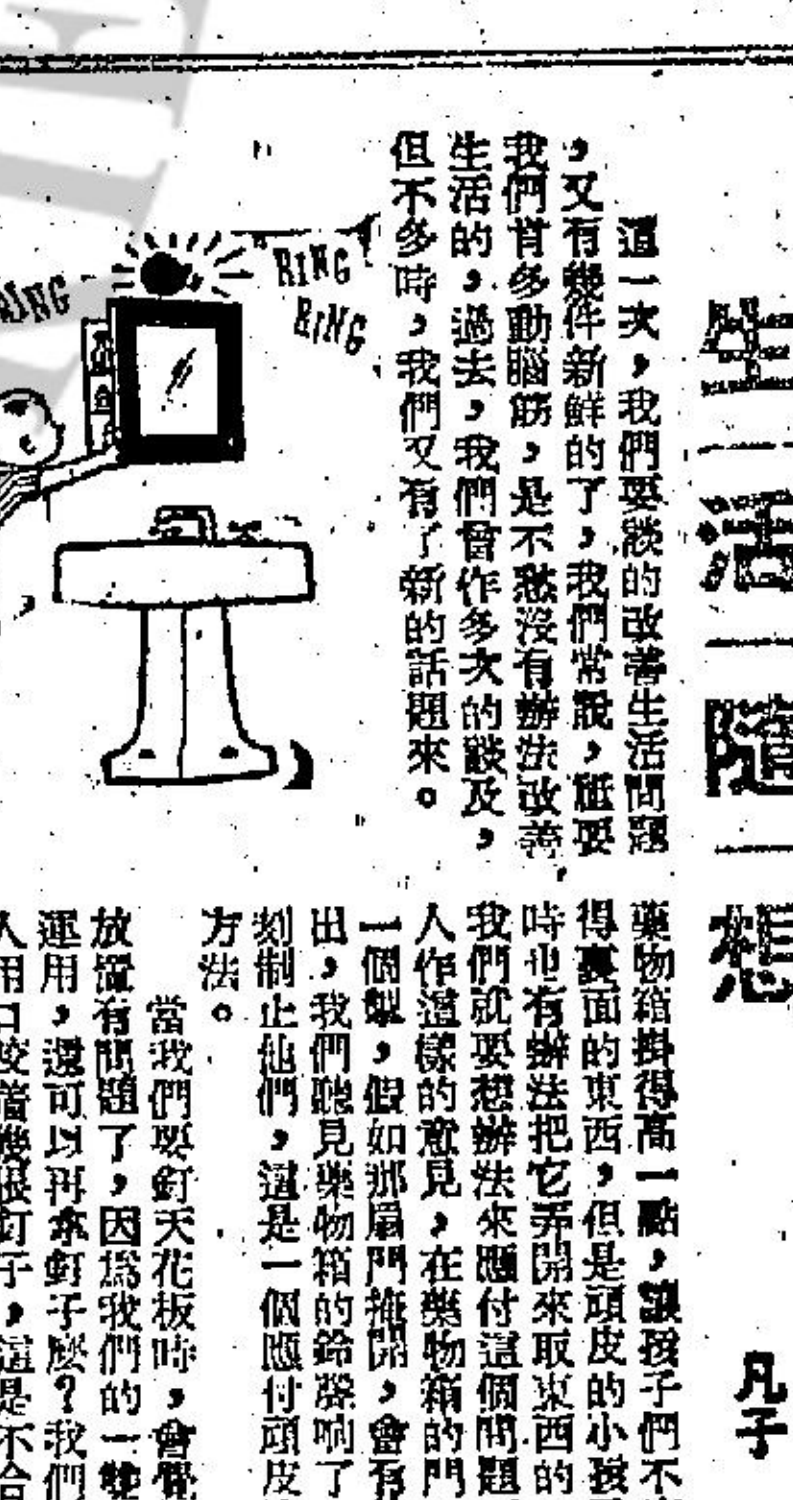 生活隨想
凡子
這一次，我們要談的改善生活問題
，又有幾件新鮮的了，我們常說，祗要
我們肯多動腦筋，是不愁沒有辦法改善
生活的，過去，我們曾作多次的談及，
但不多時，我們又有了新的話題來。
RING
RING
RING
藥物箱掛得高一點，讓孩子們不
得裏面的東西，但是頑皮的小孩
時也有辦法把它弄開來取東西的
我們就要想辦法來應付這個問題
人作這樣的意見，在藥物箱的門
一個掣，假如那扇門掩開，會有
出，我們聽見藥物箱的鈴聲响了
刻制止他們，這是一個應付頑皮
方法。
當我們要釘天花板時，會覺
放置有問題了，因爲我們的一雙
運用，還可以再拿釘子麽？我們
人用口咬着幾根釘子，這是不合